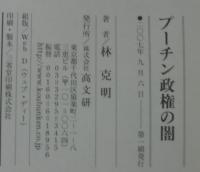 プーチン政権の闇
二〇〇七年九月六日　第一刷発行
著者　林克明
発行所　株式会社　高文研
東京都千代田区猿楽町二-一-八
三恵ビル（〒一〇一-〇〇六四）
電話　03-3295-3415
振替　00160-6-18956
http://www.koubunken.co.jp
組版　Web D（ウェブ・ディー）
印刷・製本　三省堂印刷株式会社